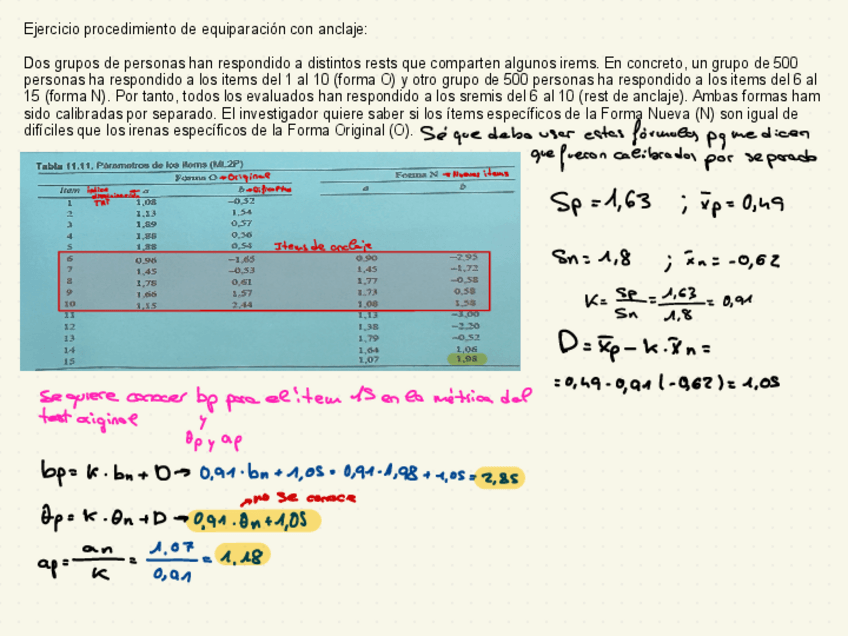 Ejercicio procedimiento de equiparación con anclaje:
Dos grupos de personas han respondido a distintos rests que comparten algunos irems. En concreto, un grupo de 500
personas ha respondido a los items del 1 al 10 (forma O) y otro grupo de 500 personas ha respondido a los items del 6 al
15 (forma N). Por tanto, todos los evaluados han respondido a los sremis del 6 al 10 (rest de anclaje). Ambas formas ham
sido calibradas por separado. El investigador quiere saber si los ítems específicos de la Forma Nueva (N) son igual de
difíciles que los irenas específicos de la Forma Original (O). Sé que debo usar estas fórmulas pq me dicen
que fueron calibrados por separado
Tabla 11.11. Parámetros de los ítems (ML2P)
Forma O → Original Forma N → Nuevos items
Item a b a b
1 1,08 -0,52
2 1,13 1,54
3 1,89 0,57
4 1,88 0,56
5 1,88 0,54 Items de anclaje
6 0,96 -1,65 0,90 -2,95
7 1,45 -0,53 1,45 -1,72
8 1,78 0,61 1,77 -0,58
9 1,66 1,57 1,73 0,58
10 1,15 2,44 1,08 1,58
11 1,13 -3,00
12 1,38 -2,20
13 1,79 -0,52
14 1,64 1,06
15 1,07 1,98
Sp = 1,63 ; x̄p = 0,49
Sn = 1,8 ; x̄n = -0,62
K = Sp/Sn = 1,63/1,8 = 0,91
D = x̄p - k · x̄n =
= 0,49 - 0,91 (-0,62) = 1,05
Se quiere conocer bp para el ítem 15 en la métrica del
test original
y
θp y ap
bp = k · bn + D → 0,91 · bn + 1,05 = 0,91 · 1,98 + 1,05 = 2,85
no se conoce
θp = k · θn + D → 0,91 · θn + 1,05
ap = an/K = 1,07/0,91 = 1,18